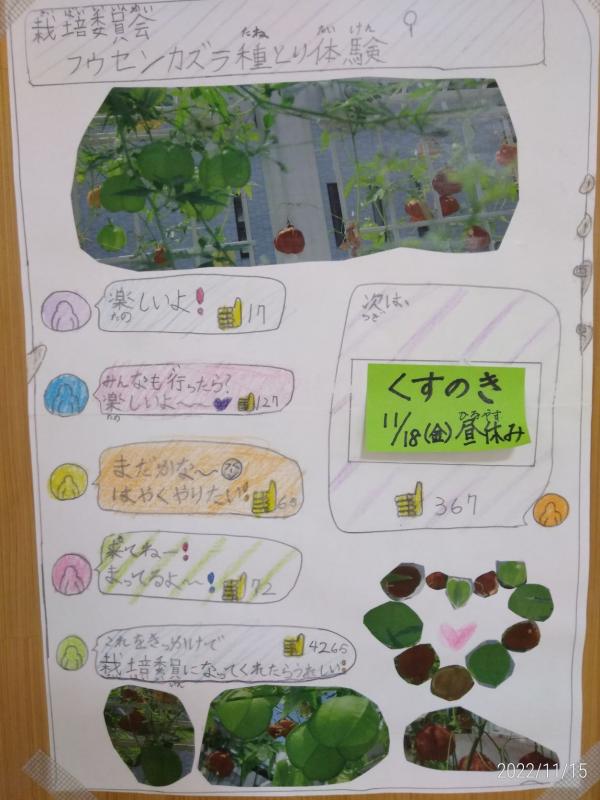 さいばいいいんかい
栽培委員会
たね たいけん
フウセンカズラ種とり体験
楽しいよ!
たの
17
みんなも行ったら?
楽しいよ〜〜
たの
127
まだかな〜
はやくやりたい!!
来てねー!
まってるよ〜!
72
これをきっかけで
4265
栽培委員になってくれたらうれしい!!
次は、
つぎ
くすのき
ひるやす
11/18(金)昼休み
367
2022/11/15